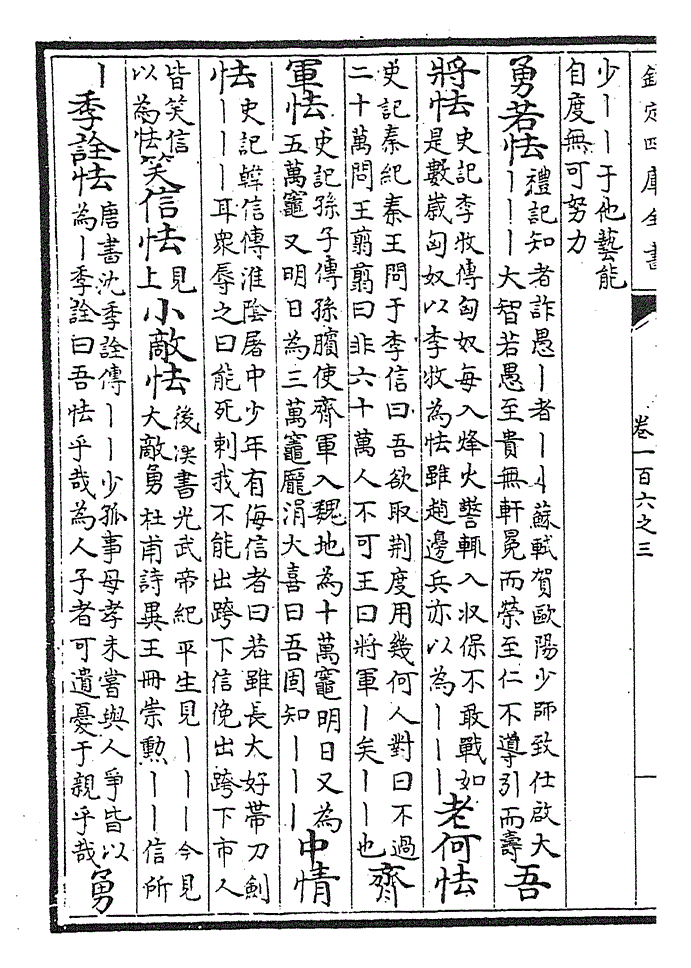 欽定四庫全書
卷一百六之三
一
少〡〡于他藝能
自度無可努力
勇若怯
禮記知者詐愚〡者〡〡蘇軾賀歐陽少師致仕啟大
〡〡〡大智若愚至貴無軒冕而榮至仁不導引而壽
吾
將怯
史記李牧傳匈奴每入烽火警輒入収保不敢戰如
是數歲匈奴以李牧為怯雖趙邊兵亦以為〡〡〡
老何怯
史記秦紀秦王問于李信曰吾欲取荆度用幾何人對曰不過
二十萬問王翦翦曰非六十萬人不可王曰將軍〡矣〡〡也
齊
軍怯
史記孫子傳孫臏使齊軍入魏地為十萬竈明日又為
五萬竈又明日為三萬竈龎涓大喜曰吾固知〡〡〡
中情
怯
史記韓信傳淮隂屠中少年有侮信者曰若雖長大好帯刀劍
〡〡〡耳衆辱之曰能死刺我不能出跨下信俛出跨下市人
皆笑信
以為怯
笑信怯
見
上
小敵怯
後漢書光武帝紀平生見〡〡〡今見
大敵勇杜甫詩異王冊崇勲〡〡信所
〡
季詮怯
唐書沈季詮傳〡〡少孤事母孝未嘗與人爭皆以
為〡季詮曰吾怯乎哉為人子者可遺憂于親乎哉
勇